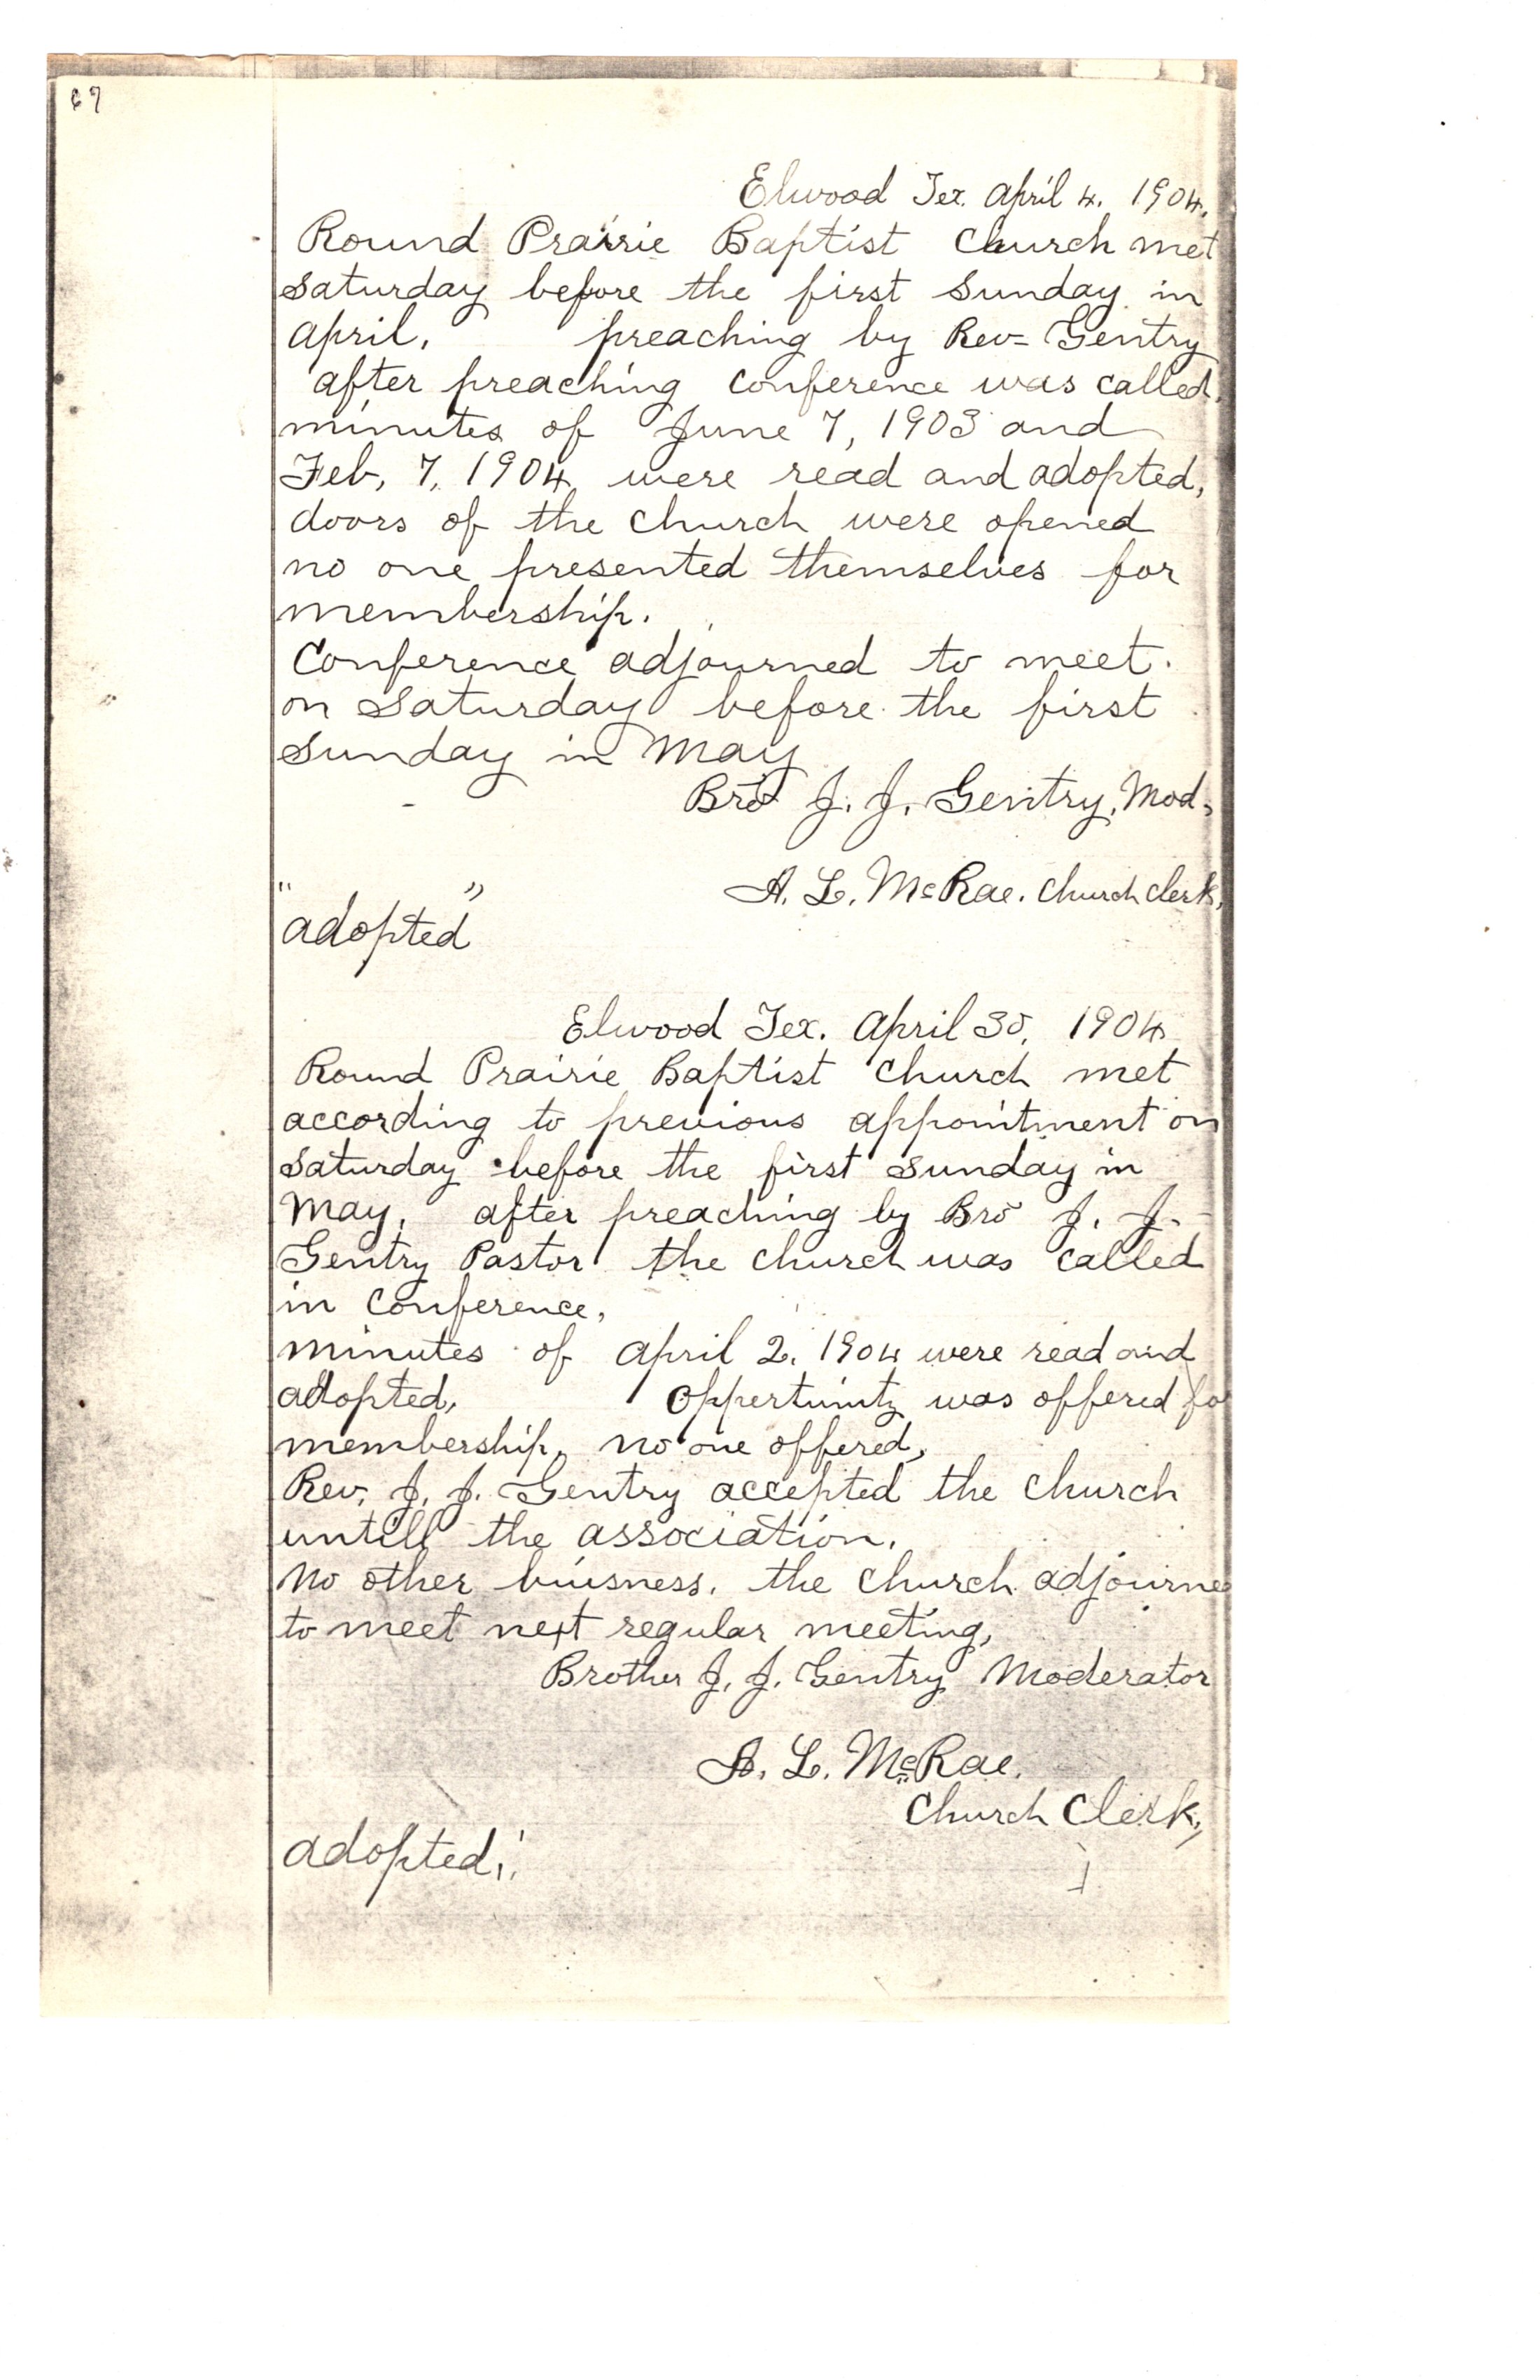 67
Elwood Tex. April 4. 1904.
Round Prairie Baptist Church met
Saturday before the first Sunday in
April. preaching by Rev= Gentry
after preaching Conference was called.
minutes of June 7, 1903 and
Feb, 7, 1904 were read and adopted,
doors of the Church were opened
no one presented themselves for
membership.
Conference adjourned to meet.
on Saturday before the first
Sunday in May
Bro J. J. Gentry, Mod,
A. L. McRae. Church Clerk,
"adopted"
Elwood Tex. April 30, 1904
Round Prairie Baptist Church met
according to previous appointment on
Saturday before the first Sunday in
May, after preaching by Bro J. J.
Gentry Pastor the Church was called
in Conference,
minutes of April 2, 1904 were read and
adopted, Oppertunity was offered fo
membership, no one offered,
Rev. J. J. Gentry accepted the Church
untill the association.
No other buisness. the Church adjourne
to meet next regular meeting,
Brother J. J. Gentry Moderator
A. L. McRae.
Church Clerk,
adopted,